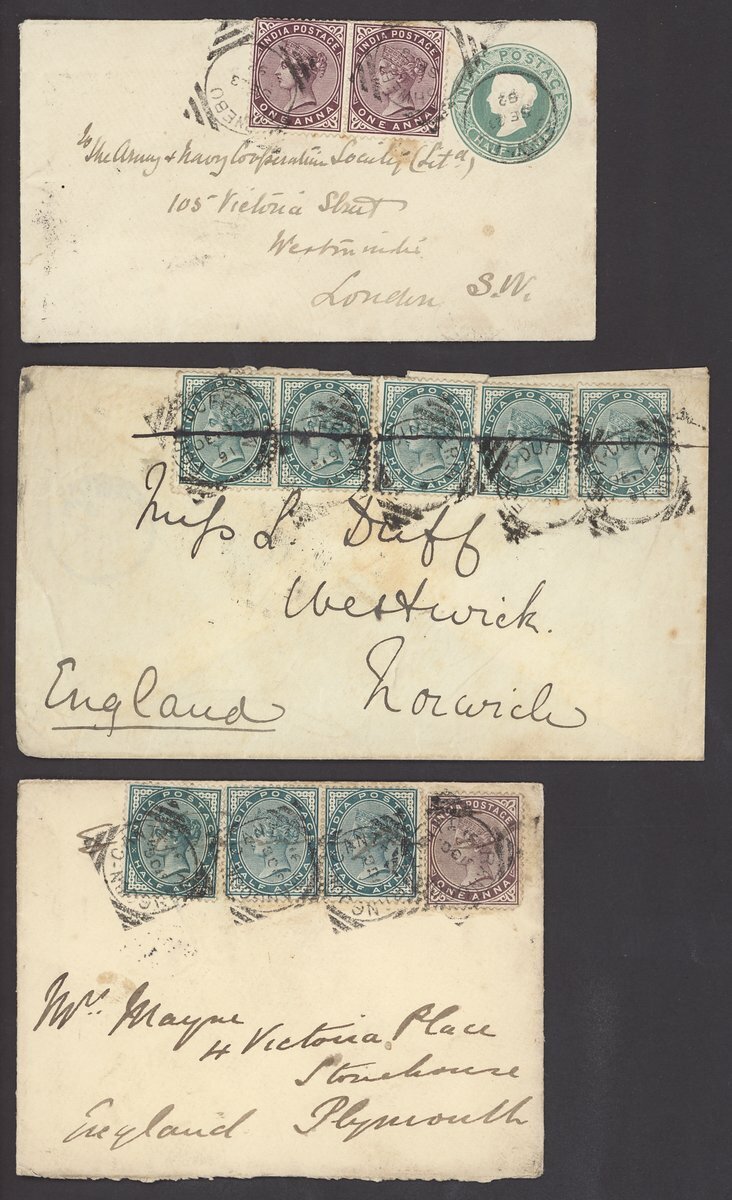 INDIA POSTAGE
ONE ANNA
INDIA POSTAGE
ONE ANNA
INDIA POSTAGE
HALF ANNA
92
To The Army & Navy Cooperative Society (Ltd)
105 Victoria Street
Westminster
London S.W.
INDIA POSTAGE
HALF ANNA
INDIA POSTAGE
HALF ANNA
INDIA POSTAGE
HALF ANNA
INDIA POSTAGE
HALF ANNA
INDIA POSTAGE
HALF ANNA
DE
91
Miss L. Duff
Westwick.
Norwich
England
INDIA POSTAGE
HALF ANNA
INDIA POSTAGE
HALF ANNA
INDIA POSTAGE
HALF ANNA
INDIA POSTAGE
ONE ANNA
Mrs Mayne
4 Victoria Place
Stonehouse
Plymouth
England